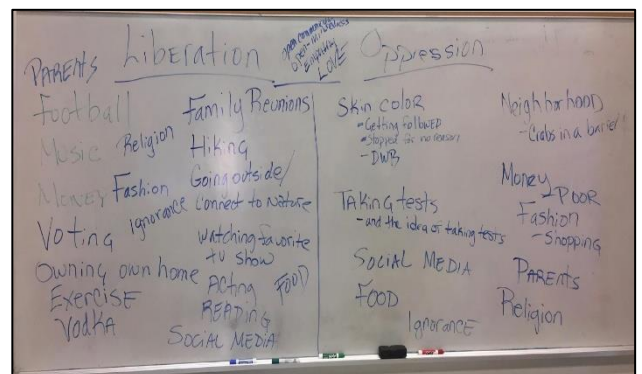 Liberation
PARENTS
Football
Music
Religion
Money
Fashion
Ignorance
Voting
Owning own home
Exercise
Vodka
Family Reunions
Hiking
Going outside/
Connect to Nature
Watching favorite
tv show
Acting
FOOD
READING
SOCIAL MEDIA
open-mindedness
Empathy
LOVE
Oppression
Skin color
- Getting followed
- Stopped for no reason
- DWB
TAKING tests
- and the idea of taking tests
SOCIAL MEDIA
FOOD
Ignorance
Neighborhood
- Crabs in a barrel
Money
- POOR
Fashion
- Shopping
PARENTS
Religion